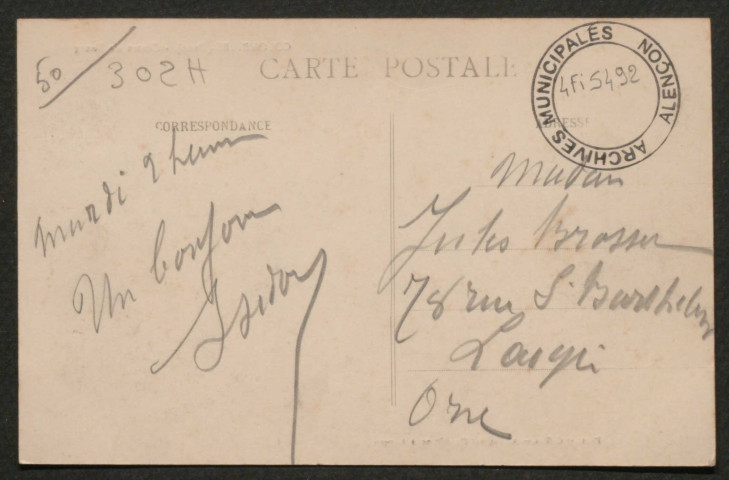 50
302H
CARTE POSTALE
ARCHIVES MUNICIPALES ALENÇON
4Fi5492
CORRESPONDANCE
ADRESSE
mardi 9 heures
Un bonjour
Isidor
Madame
Jules Brosser
78 rue S. Barthelemy
Orne